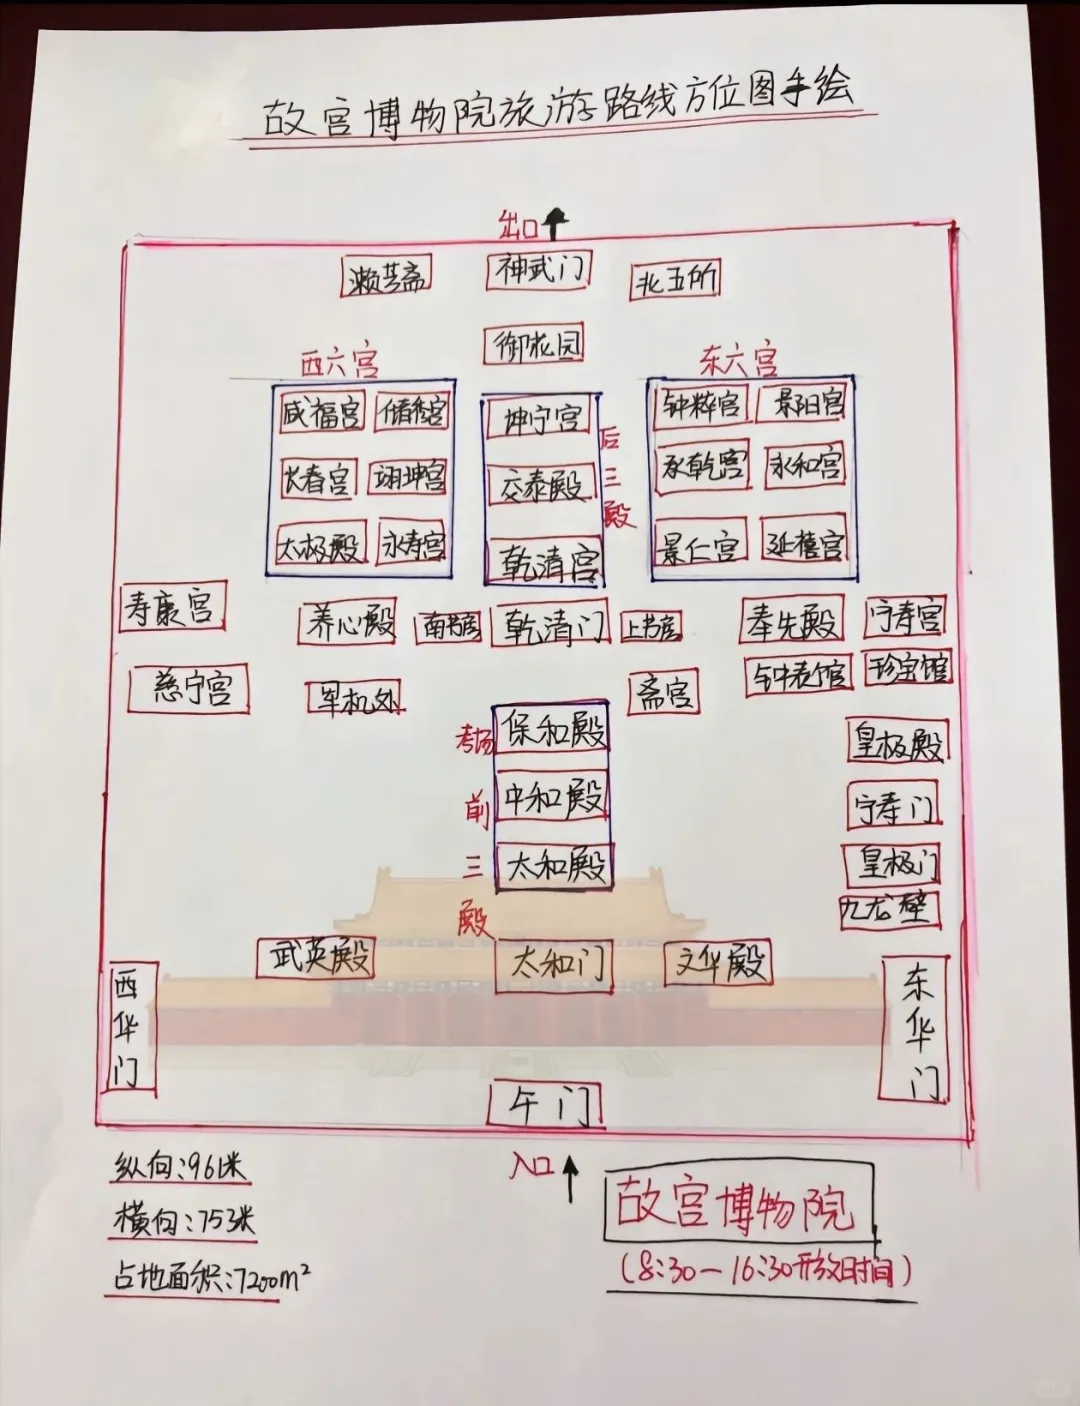 故宫博物院旅游路线方位图手绘
出口
漱芳斋 神武门 北五所
御花园
西六宫 东六宫
咸福宫 储秀宫 坤宁宫 钟粹宫 景阳宫
后三殿
长春宫 翊坤宫 交泰殿 承乾宫 永和宫
太极殿 永寿宫 乾清宫 景仁宫 延禧宫
寿康宫 养心殿 南书房 乾清门 上书房 奉先殿 宁寿宫
慈宁宫 军机处 斋宫 钟表馆 珍宝馆
考场 保和殿 皇极殿
前三殿
中和殿 宁寿门
太和殿 皇极门
九龙壁
武英殿 太和门 文华殿
西华门 东华门
午门
入口
纵向:961米
横向:753米
占地面积:7200m²
故宫博物院
(8:30—16:30开放时间)